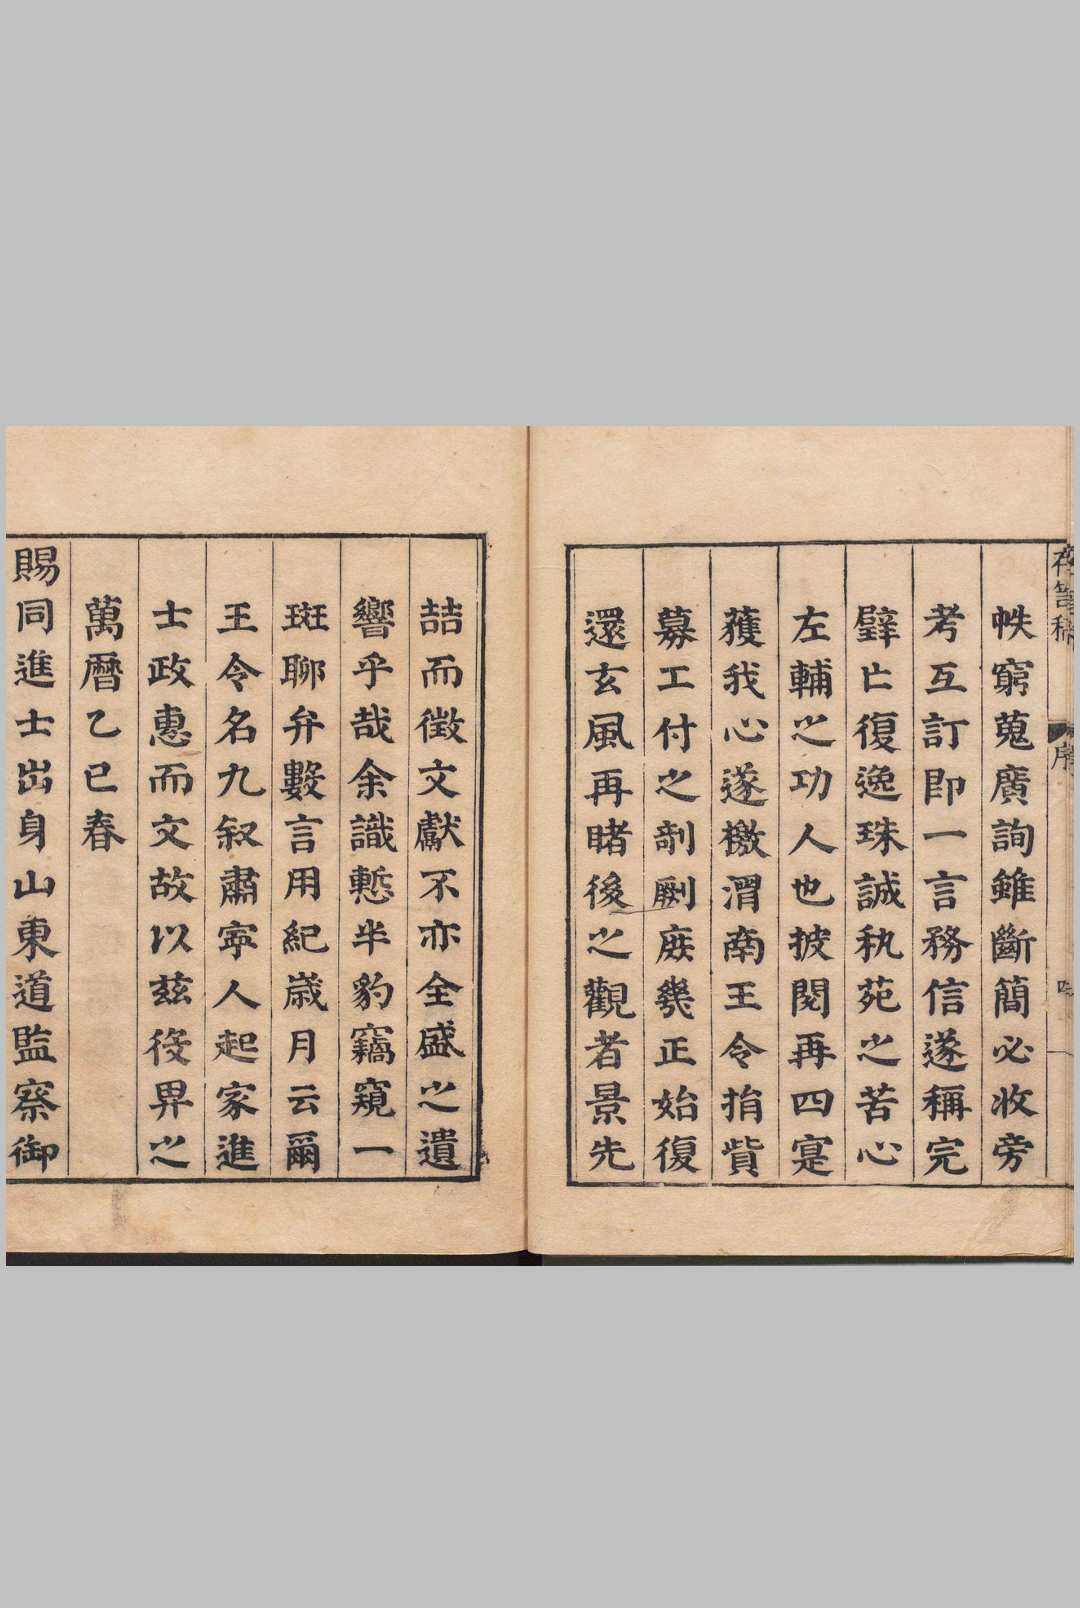 存笥稿
序
四
帙窮蒐廣詢雖斷簡必收旁
考互訂即一言務信遂稱完
璧亡復逸珠誠秇苑之苦心
左輔之功人也披閱再四寔
獲我心遂檄渭南王令捐貲
募工付之剞劂庻幾正始復
還玄風再睹後之觀者景先
喆而徵文獻不亦全盛之遺
響乎哉余識慙半豹竊窺一
斑聊弁數言用紀歲月云爾
王令名九叙肅寧人起家進
士政惠而文故以兹役畀之
萬曆乙巳春
賜同進士出身山東道監察御